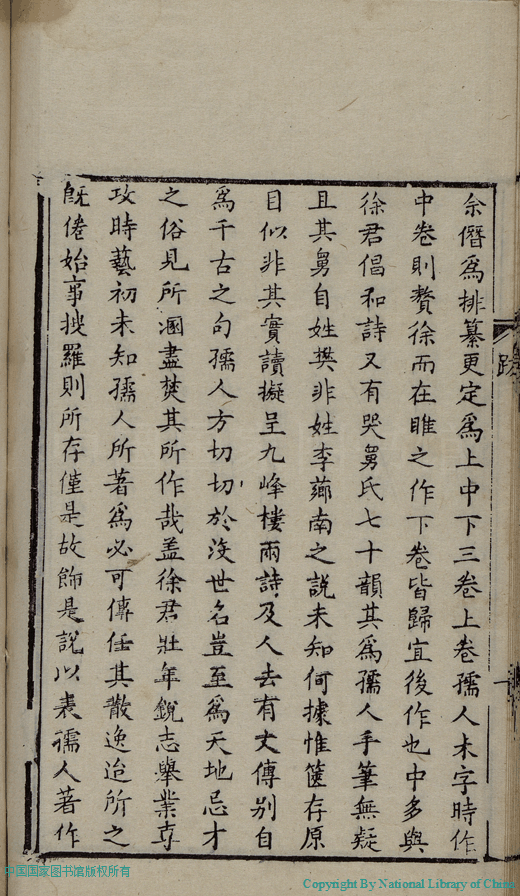 余僭爲排纂更定爲上中下三卷上卷孺人未字時作
中卷則贅徐而在睢之作下卷皆歸宜後作也中多與
徐君倡和詩又有哭舅氏七十韻其爲孺人手筆無疑
且其舅自姓樊非姓李薌南之說未知何據惟篋存原
目似非其實讀擬呈九峰樓兩詩及人去有文傳別自
爲千古之句孺人方切切於沒世名豈至爲天地忌才
之俗見所溷盡焚其所作哉盖徐君壯年銳志舉業專
攻時藝初未知孺人所著爲必可傳任其散逸迨所之
旣倦始事搜羅則所存僅是故飾是說以表孺人著作
跋
中国国家图书馆版权所有
Copyright By National Library of China